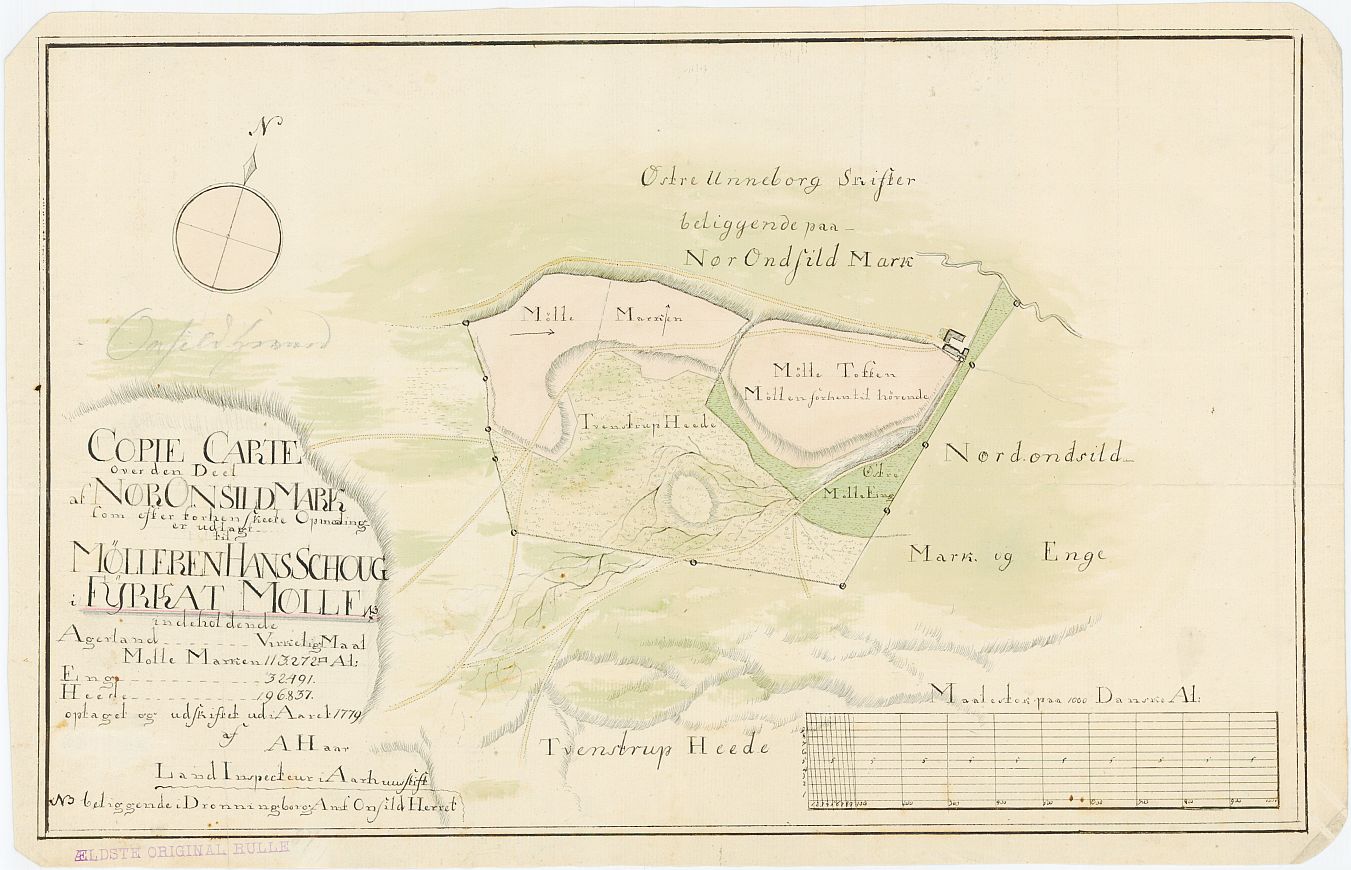 N
Østre Unneborg Skifter
beliggende paa
Nør Ondsild Mark
Mölle Marken
Mölle Toften
Möllen forhen til hörende
Tvenstrup Heede
Østre
Mølle Eng
Nørd. ondsild
Mark. og Enge
Onsild
COPIE CARTE
Over den Deel
af NØR ONSILD MARK
som efter forhen skeete Opmaaling
er udlagt
til
MÖLLEREN HANS SCHOUG
i FŸRKAT MØLLE NB
indeholdende
Agerland Virkelig Maal
Mølle Marken 113272 □ Al:
Eng 32491.
Heede 196837.
optaget og udskiftet udi Aaret 1779
af
A Haar
Land Inspecteur i Aarhuusstift
NB beliggende i Dronningborg Amt Onsild Herret
Tvenstrup Heede
Maalestok paa 1000 Danske Al:
ÆLDSTE ORIGINAL RULLE